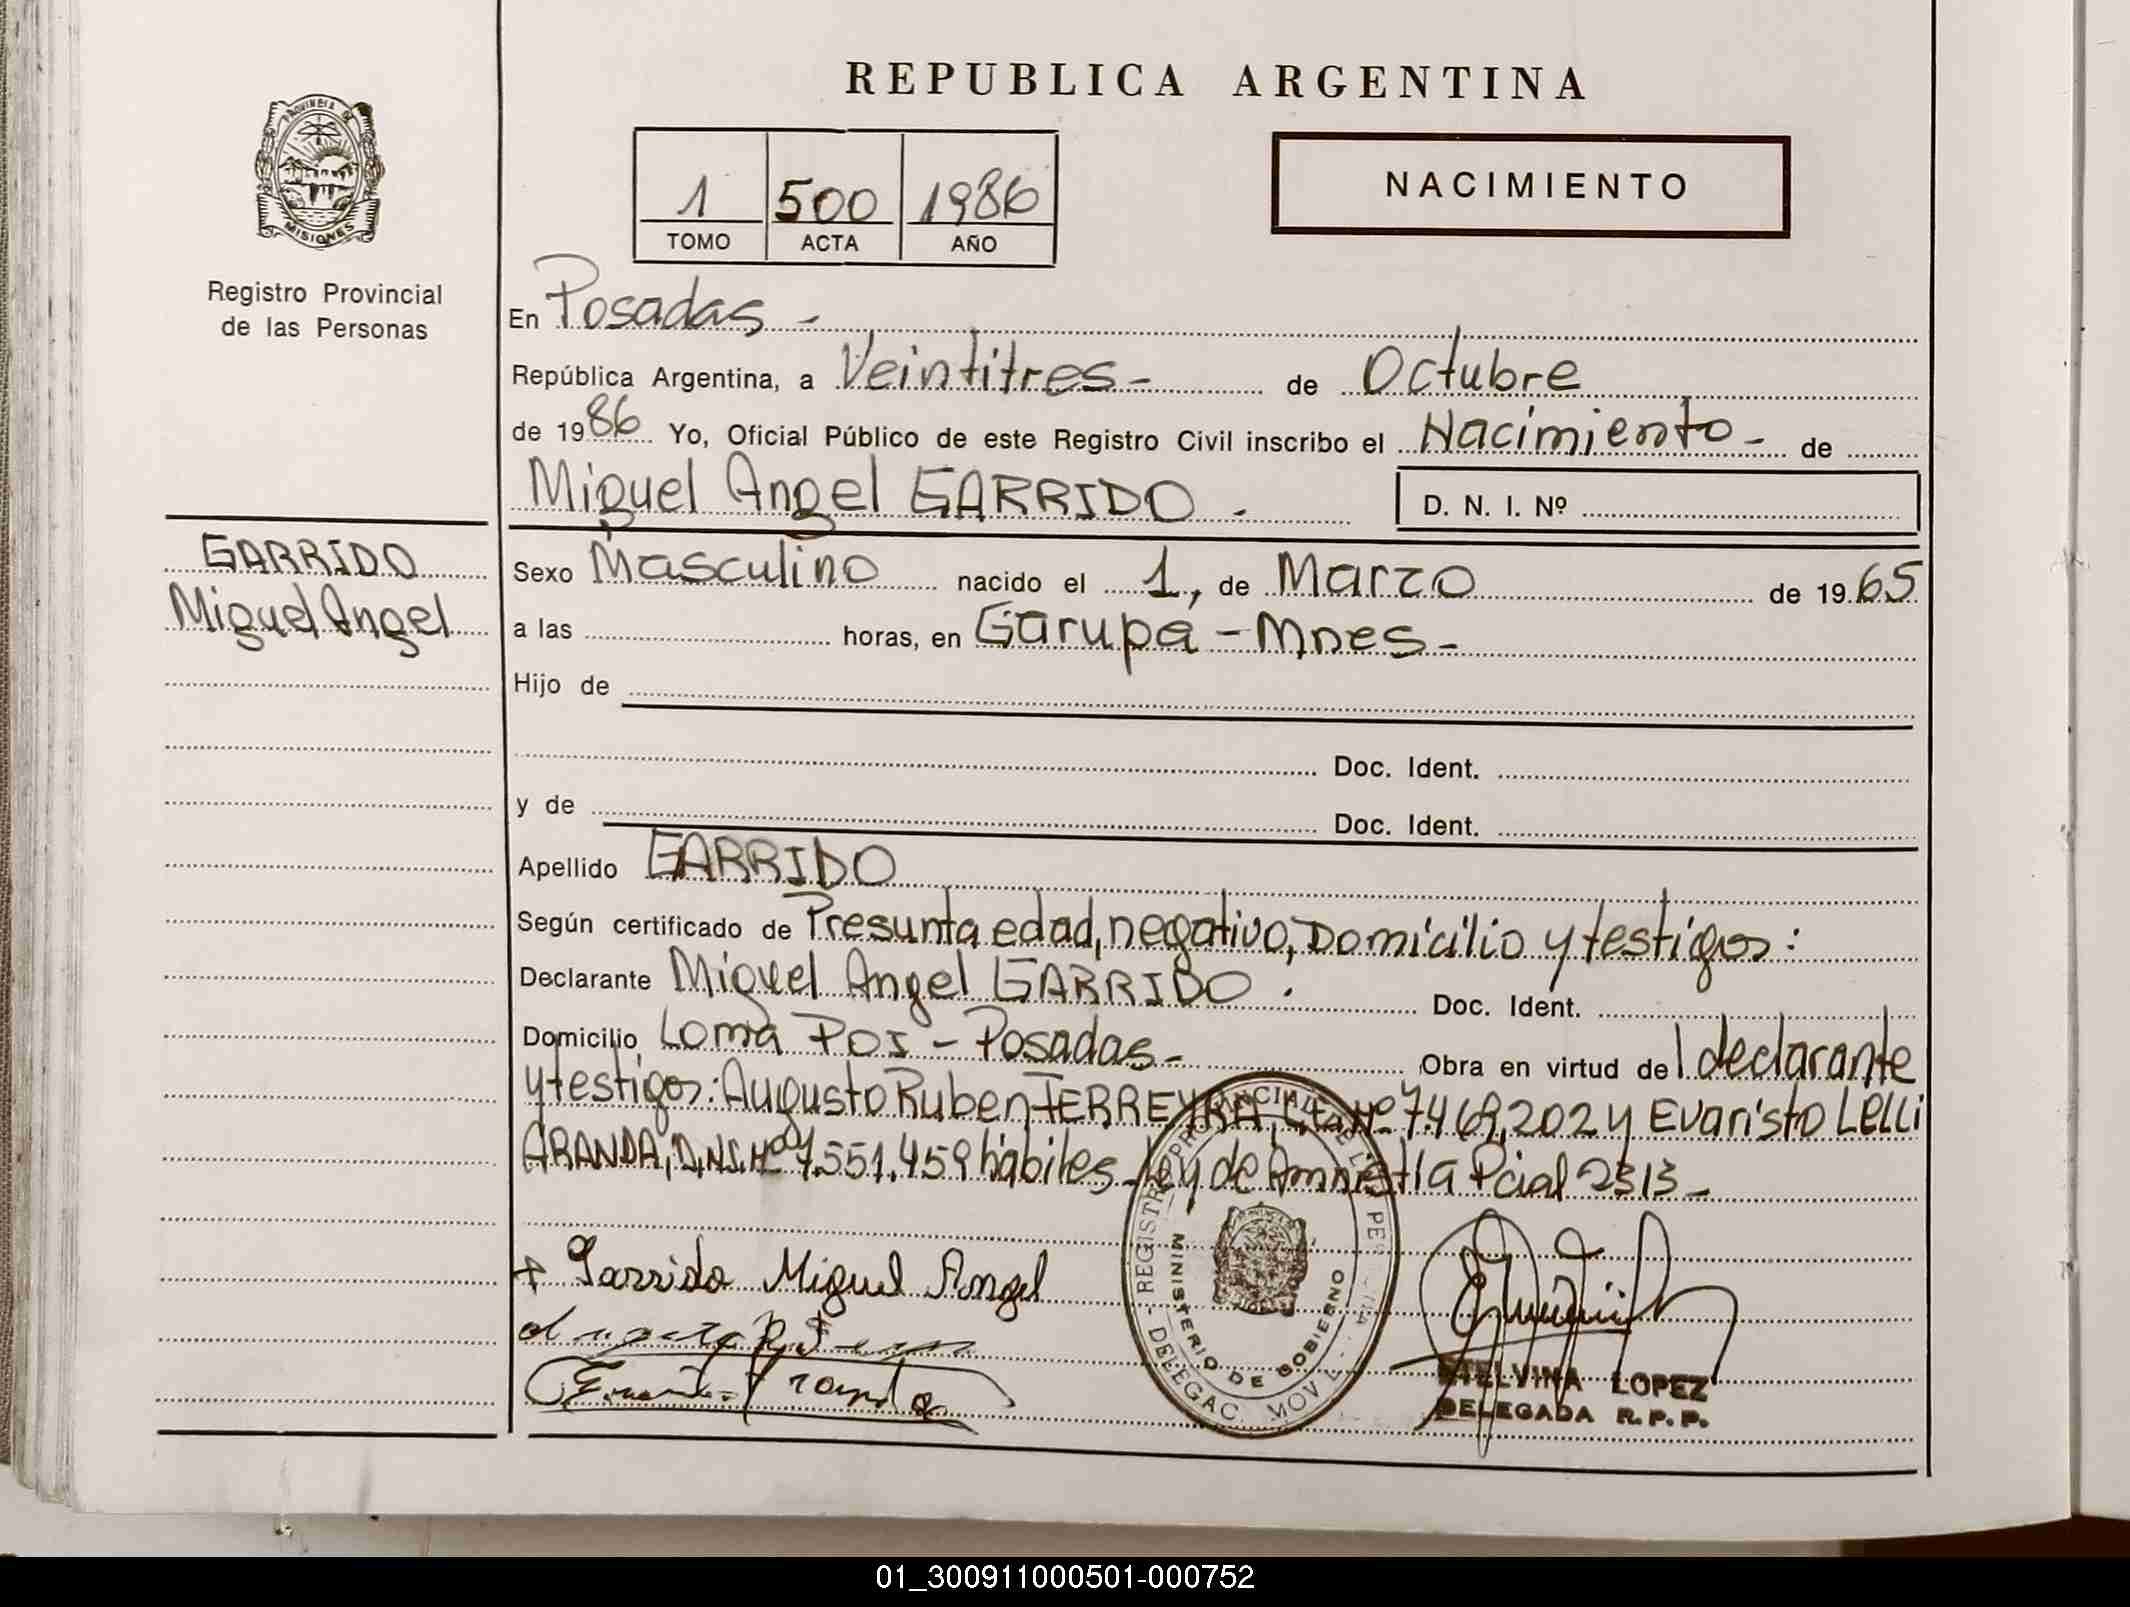 REPUBLICA ARGENTINA
PROVINCIA DE
MISIONES
Registro Provincial
de las Personas
1 500 1986
TOMO ACTA AÑO
NACIMIENTO
En Posadas -
República Argentina, a Veintitres - de Octubre
de 1986 Yo, Oficial Público de este Registro Civil inscribo el Nacimiento - de
Miguel Angel GARRIDO -
D. N. I. Nº
GARRIDO
Miguel Angel
Sexo Masculino nacido el 1, de Marzo de 1965
a las horas, en Garupa - Mnes -
Hijo de
Doc. Ident.
y de Doc. Ident.
Apellido GARRIDO
Según certificado de Presunta edad, negativo, Domicilio y testigos:
Declarante Miguel Angel GARRIDO . Doc. Ident.
Domicilio Loma Poi - Posadas - Obra en virtud del declarante
y testigos: Augusto Ruben FERREYRA, Nº 7.469.202 y Evaristo Lelli
ARANDA, D.N.I. Nº 7.551.459 hábiles - Ley de Amnistía Pcial 2313 -
Garrido Miguel Angel
REGISTRO PROVINCIAL DE LAS PERSONAS
MINISTERIO DE GOBIERNO
DELEGAC. MOVIL
STELVINA LOPEZ
DELEGADA R.P.P.
01_300911000501-000752